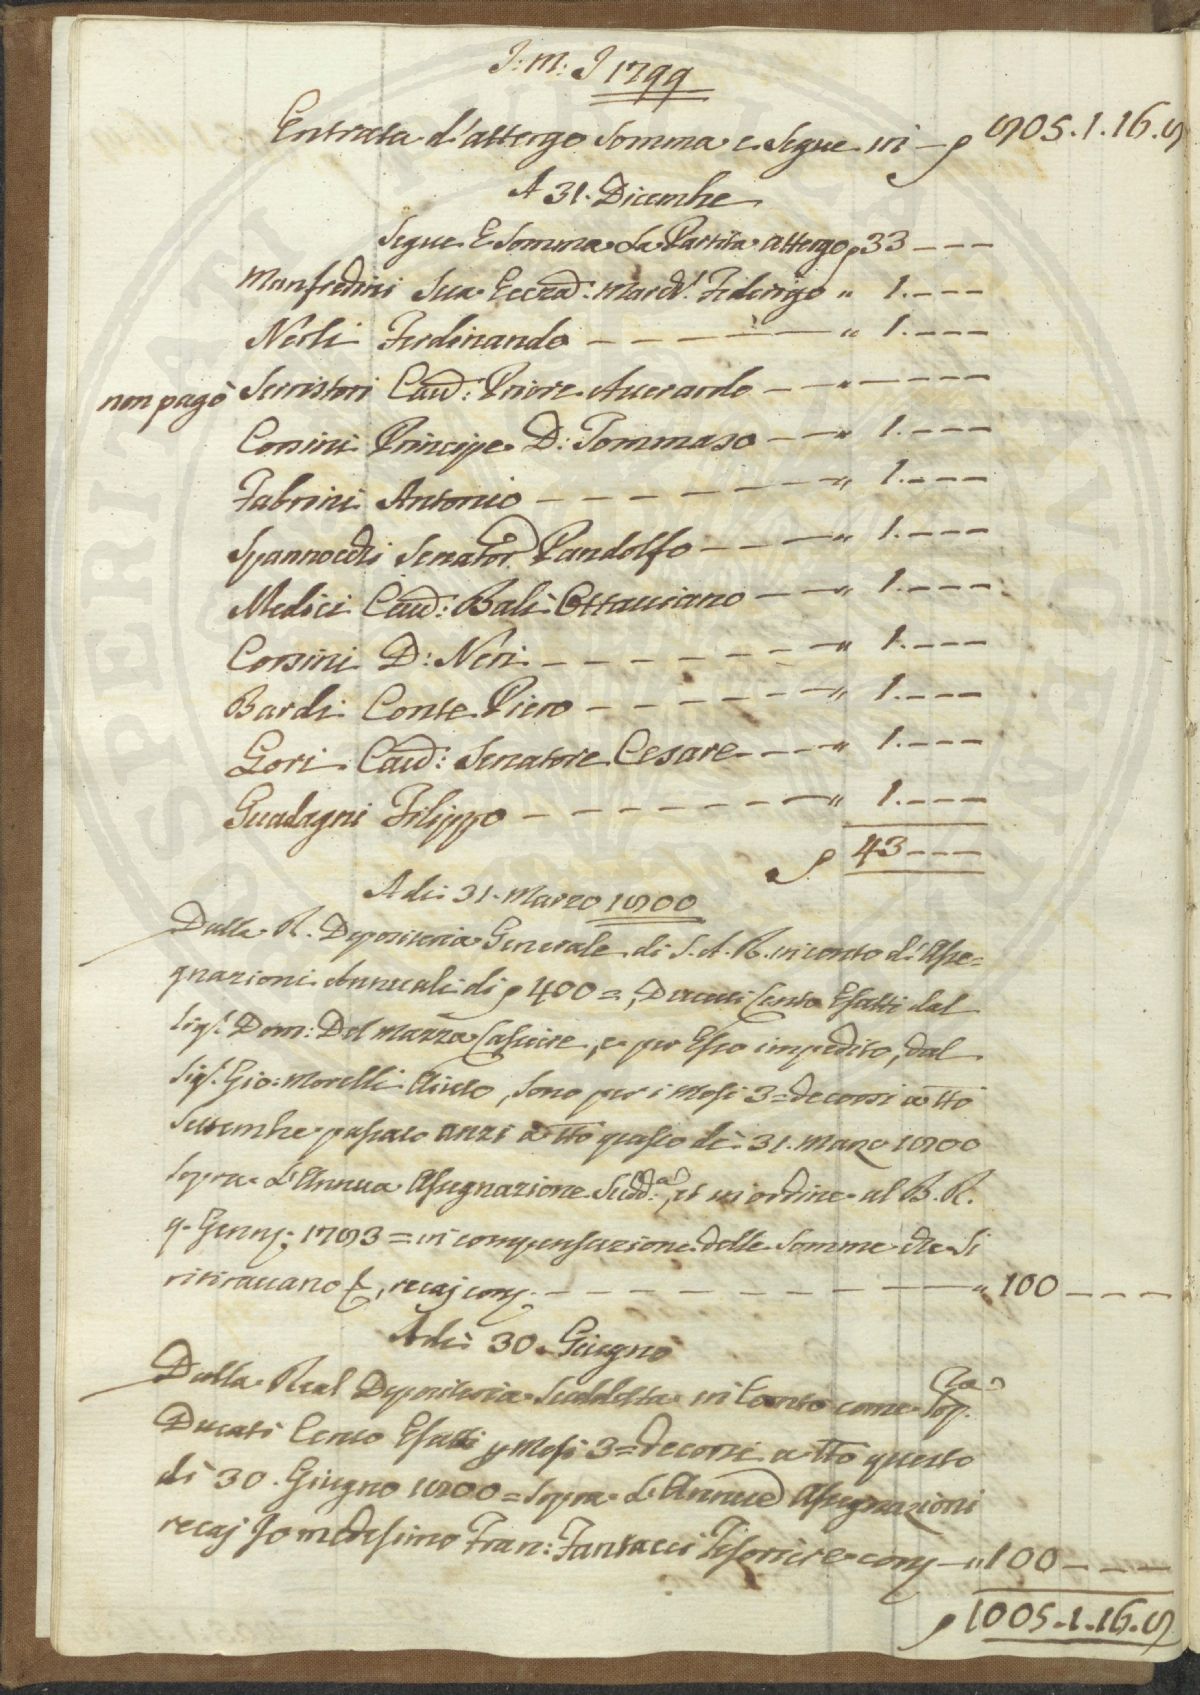 J: M: J 1799
Entrata d'attergo Somma e Segue in — 805.1.16.8
A 31. Dicembre
Segue E Somma La Partita attergo 33 — — —
Manfredini Sua Eccza: March: Federigo " 1. — — —
Nerli Ferdinando — — — — " 1. — — —
non pagò Serristori Cav: Priore Averardo — — " — — — —
Corsini Principe D: Tommaso — — " 1. — — —
Fabrini Antonio — — — — — " 1. — — —
Spannocchi Senator Pandolfo — — — " 1. — — —
Medici Cav: Balì Ottaviano — — " 1. — — —
Corsini D: Neri — — — — — " 1. — — —
Bardi Conte Piero — — — — " 1. — — —
Gori Cav: Senatore Cesare — — — " 1. — — —
Guadagni Filippo — — — — — " 1. — — —
43 — — —
Adì 31. Marzo 1800
Dalla R. Depositeria Generale di S. A. R. in conto di Asse=
gnazioni Annuali di 400 =, Ducati Cento Esatti dal
Sigr. Dom: Del Mazza Cassiere, e per Esso impedito, dal
Sigr. Gio: Morelli Aiuto, sono per i Mesi 3 = decorsi a tto
Settembre passato anzi a tto questo dì 31. Marzo 1800
Sopra L'Annua Assegnazione Sudd:a, et in ordine al B. R.
9. Genn: 1793 = in compensazione delle Somme che Si
ritiravano, recaj — — — — — " 100 — — —
Adì 30. Giugno
Dalla Real Depositeria Suddetta in Conto come Sop.ra
Ducati Cento Esatti p Mesi 3 = decorsi a tto questo
dì 30. Giugno 1800 = Sopra L'Annue Assegnazioni
recaj Io medesimo Fran: Fantacci Tesoriere — " 100 — — —
1005.1.16.8